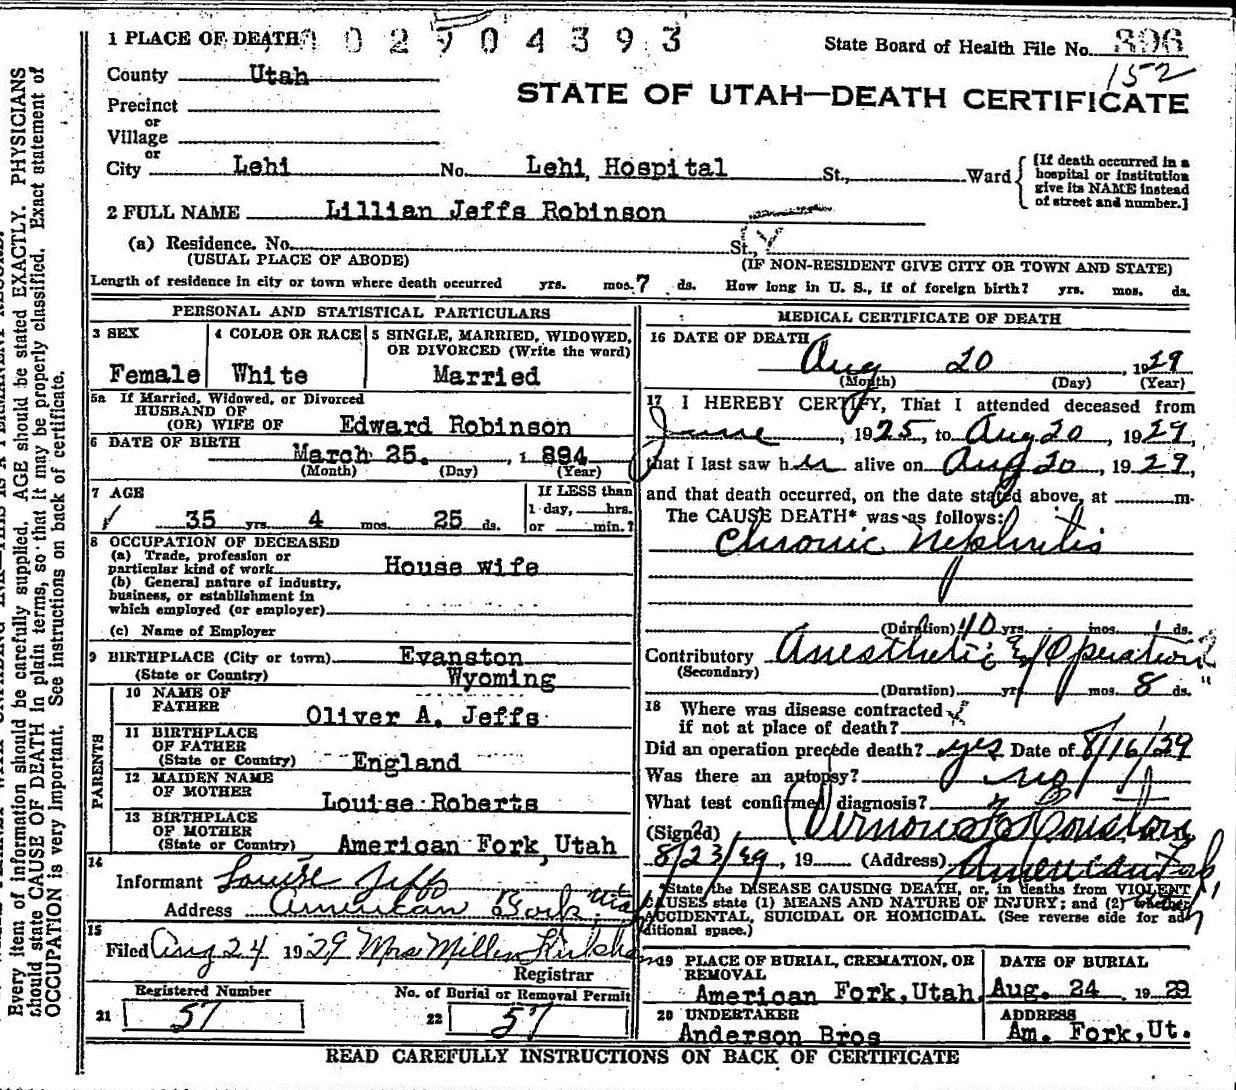 1 PLACE OF DEATH 02904393
State Board of Health File No. 396
152
County Utah
STATE OF UTAH—DEATH CERTIFICATE
Precinct
or
Village
or
City Lehi No. Lehi, Hospital St., Ward
[If death occurred in a
hospital or institution
give its NAME instead
of street and number.]
2 FULL NAME Lillian Jeffs Robinson
(a) Residence. No. St.,
(USUAL PLACE OF ABODE) (IF NON-RESIDENT GIVE CITY OR TOWN AND STATE)
Length of residence in city or town where death occurred yrs. mos. 7 ds. How long in U. S., if of foreign birth? yrs. mos. ds.
PERSONAL AND STATISTICAL PARTICULARS
3 SEX
Female
4 COLOR OR RACE
White
5 SINGLE, MARRIED, WIDOWED,
OR DIVORCED (Write the word)
Married
5a If Married, Widowed, or Divorced
HUSBAND OF
(OR) WIFE OF Edward Robinson
6 DATE OF BIRTH
March 25. , 1 894
(Month) (Day) (Year)
7 AGE
35 yrs. 4 mos. 25 ds.
If LESS than
1 day, hrs.
or min.?
8 OCCUPATION OF DECEASED
(a) Trade, profession or
particular kind of work House wife
(b) General nature of industry,
business, or establishment in
which employed (or employer)
(c) Name of Employer
9 BIRTHPLACE (City or town) Evanston
(State or Country) Wyoming
PARENTS
10 NAME OF
FATHER
Oliver A. Jeffs
11 BIRTHPLACE
OF FATHER
(State or Country) England
12 MAIDEN NAME
OF MOTHER
Louise Roberts
13 BIRTHPLACE
OF MOTHER
(State or Country) American Fork, Utah
14
Informant Louise Jeffs
Address American Fork Utah
15
Filed Aug 24 1929 Mrs
Registrar
Registered Number
21 57
No. of Burial or Removal Permit
22 57
MEDICAL CERTIFICATE OF DEATH
16 DATE OF DEATH
Aug 20 , 1929
(Month) (Day) (Year)
17 I HEREBY CERTIFY, That I attended deceased from
June , 1925, to Aug 20 , 1929,
that I last saw her alive on Aug 20 , 1929,
and that death occurred, on the date stated above, at m.
The CAUSE DEATH* was as follows:
Chronic Nephritis
(Duration) 10 yrs. mos. ds.
Contributory Anesthetic & Operation
(Secondary)
(Duration) yrs. mos. 8 ds.
18 Where was disease contracted
if not at place of death?
Did an operation precede death? yes Date of 8/16/29
Was there an autopsy? no
What test confirmed diagnosis?
(Signed) Vernon F. Houston
8/23/29, 19 (Address) American Fork,
*State the DISEASE CAUSING DEATH, or, in deaths from VIOLENT
CAUSES state (1) MEANS AND NATURE OF INJURY; and (2) whether
ACCIDENTAL, SUICIDAL OR HOMICIDAL. (See reverse side for ad-
ditional space.)
19 PLACE OF BURIAL, CREMATION, OR
REMOVAL
American Fork, Utah
DATE OF BURIAL
Aug. 24 , 1929
20 UNDERTAKER
Anderson Bros
ADDRESS
Am. Fork, Ut.
READ CAREFULLY INSTRUCTIONS ON BACK OF CERTIFICATE
Every item of information should be carefully supplied. AGE should be stated EXACTLY. PHYSICIANS
should state CAUSE OF DEATH in plain terms, so that it may be properly classified. Exact statement of
OCCUPATION is very important. See instructions on back of certificate.